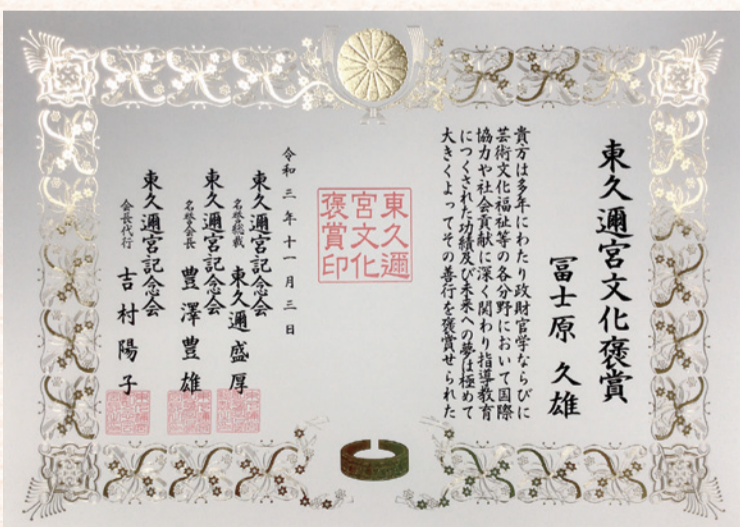 東久邇宮文化褒賞
冨士原 久雄
貴方は多年にわたり政財官学ならびに
芸術文化福祉等の各分野において国際
協力や社会貢献に深く関わり指導教育
につくされた功績及び未来への夢は極めて
大きくよってその善行を褒賞せられた
東久邇
宮文化
褒賞印
令和三年十一月三日
東久邇宮記念会
名誉総裁 東久邇 盛厚
東久邇宮記念会
名誉会長 豊澤豊雄
東久邇宮記念会
会長代行 吉村陽子